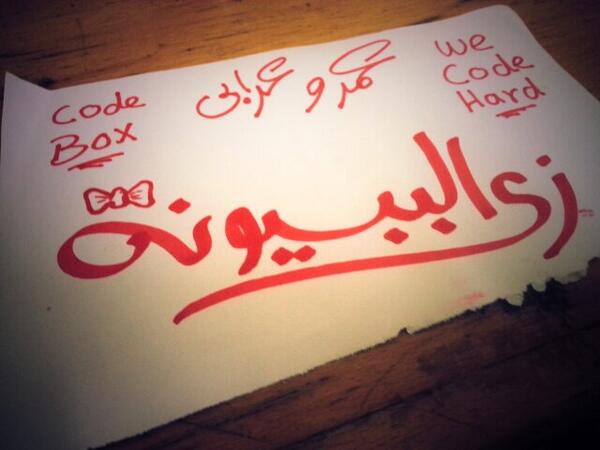 Code
Box
عمرو عرابى
We
Code
Hard
زى الببسيونة